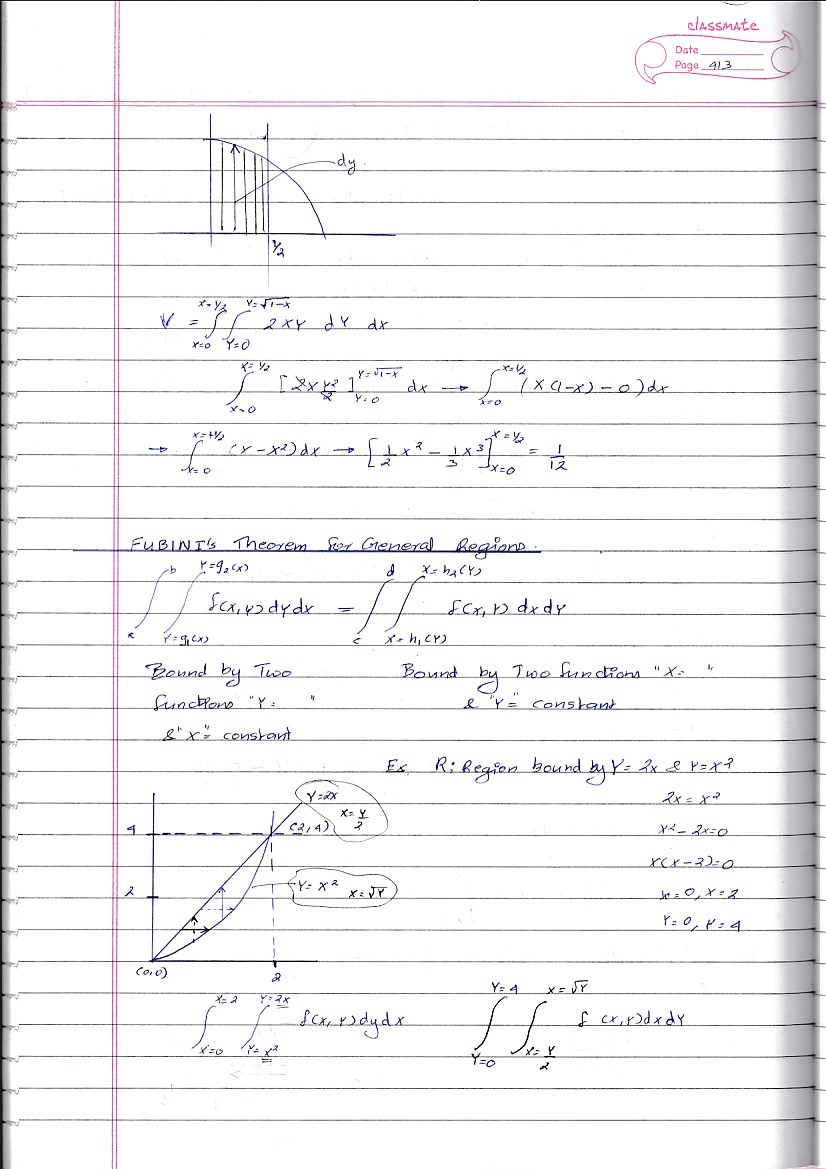 classmate
Date
Page 413
dy.
1/2
V = ∫_{x=0}^{x=1/2} ∫_{Y=0}^{Y=√1-x} 2XY dY dx
∫_{x=0}^{x=1/2} [2x Y²/2]_{Y=0}^{Y=√1-x} dx → ∫_{x=0}^{x=1/2} (X(1-x) - 0)dx
→ ∫_{x=0}^{x=+1/2} (X - X²)dx → [1/2 x² - 1/3 x³]_{x=0}^{x=1/2} = 1/12
FUBINI's Theorem for General Regions.
∫_a^b ∫_{Y=g₁(x)}^{Y=g₂(x)} f(x,y)dydx = ∫_c^d ∫_{X=h₁(Y)}^{X=h₂(Y)} f(x,Y) dxdY
Bound by Two
functions "Y= "
& "X=" constant
Bound by Two functions "X= "
& "Y=" constant
Ex. R: Region bound by Y=2x & Y=X²
2x = x²
x² - 2x=0
x(x-2)=0
x=0, x=2
Y=0, Y=4
Y=2x
x=Y/2
4
(2,4)
2
Y=X²
x=√Y
(0,0)
2
∫_{x=0}^{x=2} ∫_{Y=x²}^{Y=2x} f(x,Y)dydx
∫_{Y=0}^{Y=4} ∫_{x=Y/2}^{x=√Y} f(x,Y)dxdY